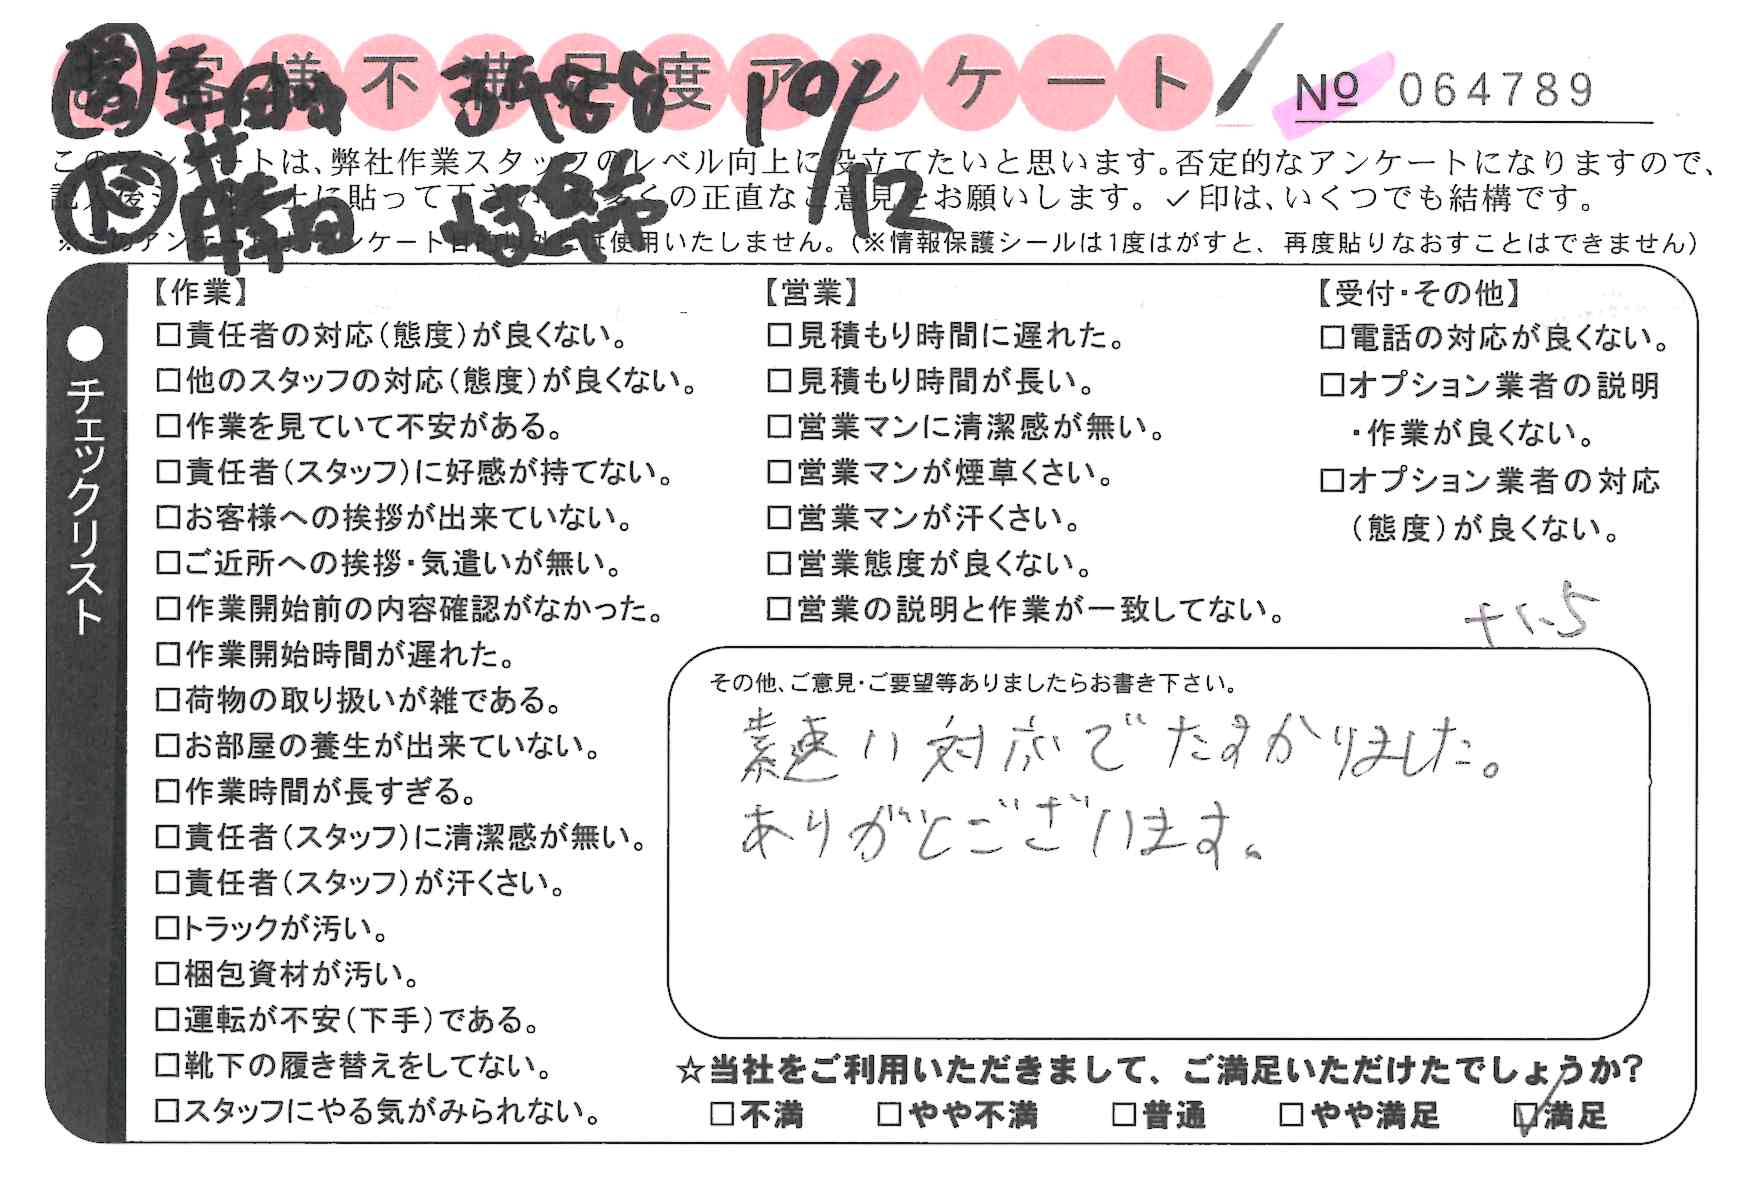 お客様不満足度アンケート
№ 064789
10/12
このアンケートは、弊社作業スタッフのレベル向上に役立てたいと思います。否定的なアンケートになりますので、
貼って下さい。数多くの正直なご意見をお願いします。✓印は、いくつでも結構です。
使用いたしません。(※情報保護シールは1度はがすと、再度貼りなおすことはできません)
●チェックリスト
【作業】
□責任者の対応(態度)が良くない。
□他のスタッフの対応(態度)が良くない。
□作業を見ていて不安がある。
□責任者(スタッフ)に好感が持てない。
□お客様への挨拶が出来ていない。
□ご近所への挨拶・気遣いが無い。
□作業開始前の内容確認がなかった。
□作業開始時間が遅れた。
□荷物の取り扱いが雑である。
□お部屋の養生が出来ていない。
□作業時間が長すぎる。
□責任者(スタッフ)に清潔感が無い。
□責任者(スタッフ)が汗くさい。
□トラックが汚い。
□梱包資材が汚い。
□運転が不安(下手)である。
□靴下の履き替えをしてない。
□スタッフにやる気がみられない。
【営業】
□見積もり時間に遅れた。
□見積もり時間が長い。
□営業マンに清潔感が無い。
□営業マンが煙草くさい。
□営業マンが汗くさい。
□営業態度が良くない。
□営業の説明と作業が一致してない。
【受付・その他】
□電話の対応が良くない。
□オプション業者の説明
・作業が良くない。
□オプション業者の対応
(態度)が良くない。
+1.5
その他、ご意見・ご要望等ありましたらお書き下さい。
素速い対応でたすかりました。
ありがとございます。
☆当社をご利用いただきまして、ご満足いただけたでしょうか?
□不満 □やや不満 □普通 □やや満足 ☑満足